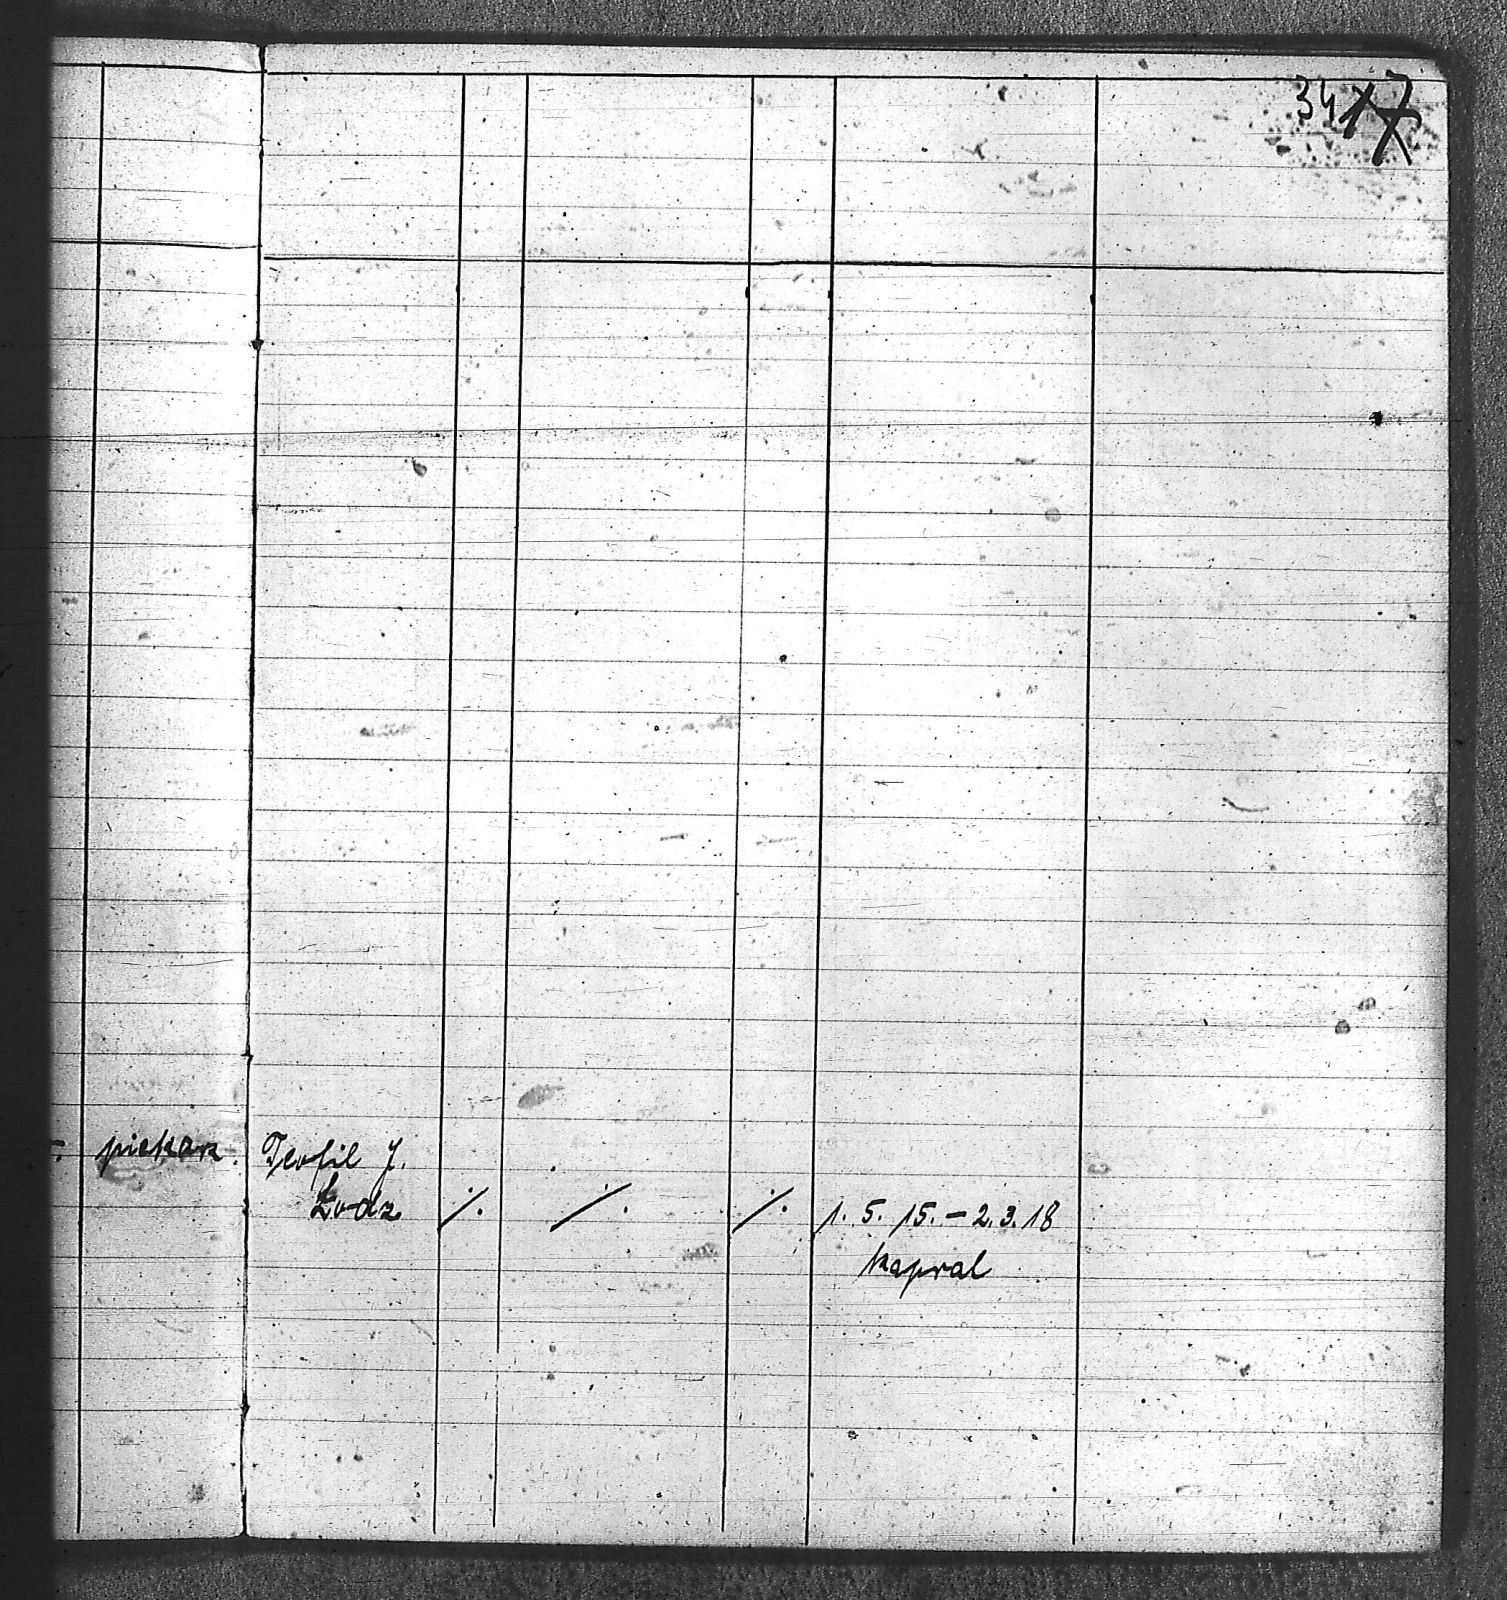 34 17
piekarz. Teofil J.
Łodz ./. ./. ./. 1. 5. 15. – 2. 3. 18
kapral